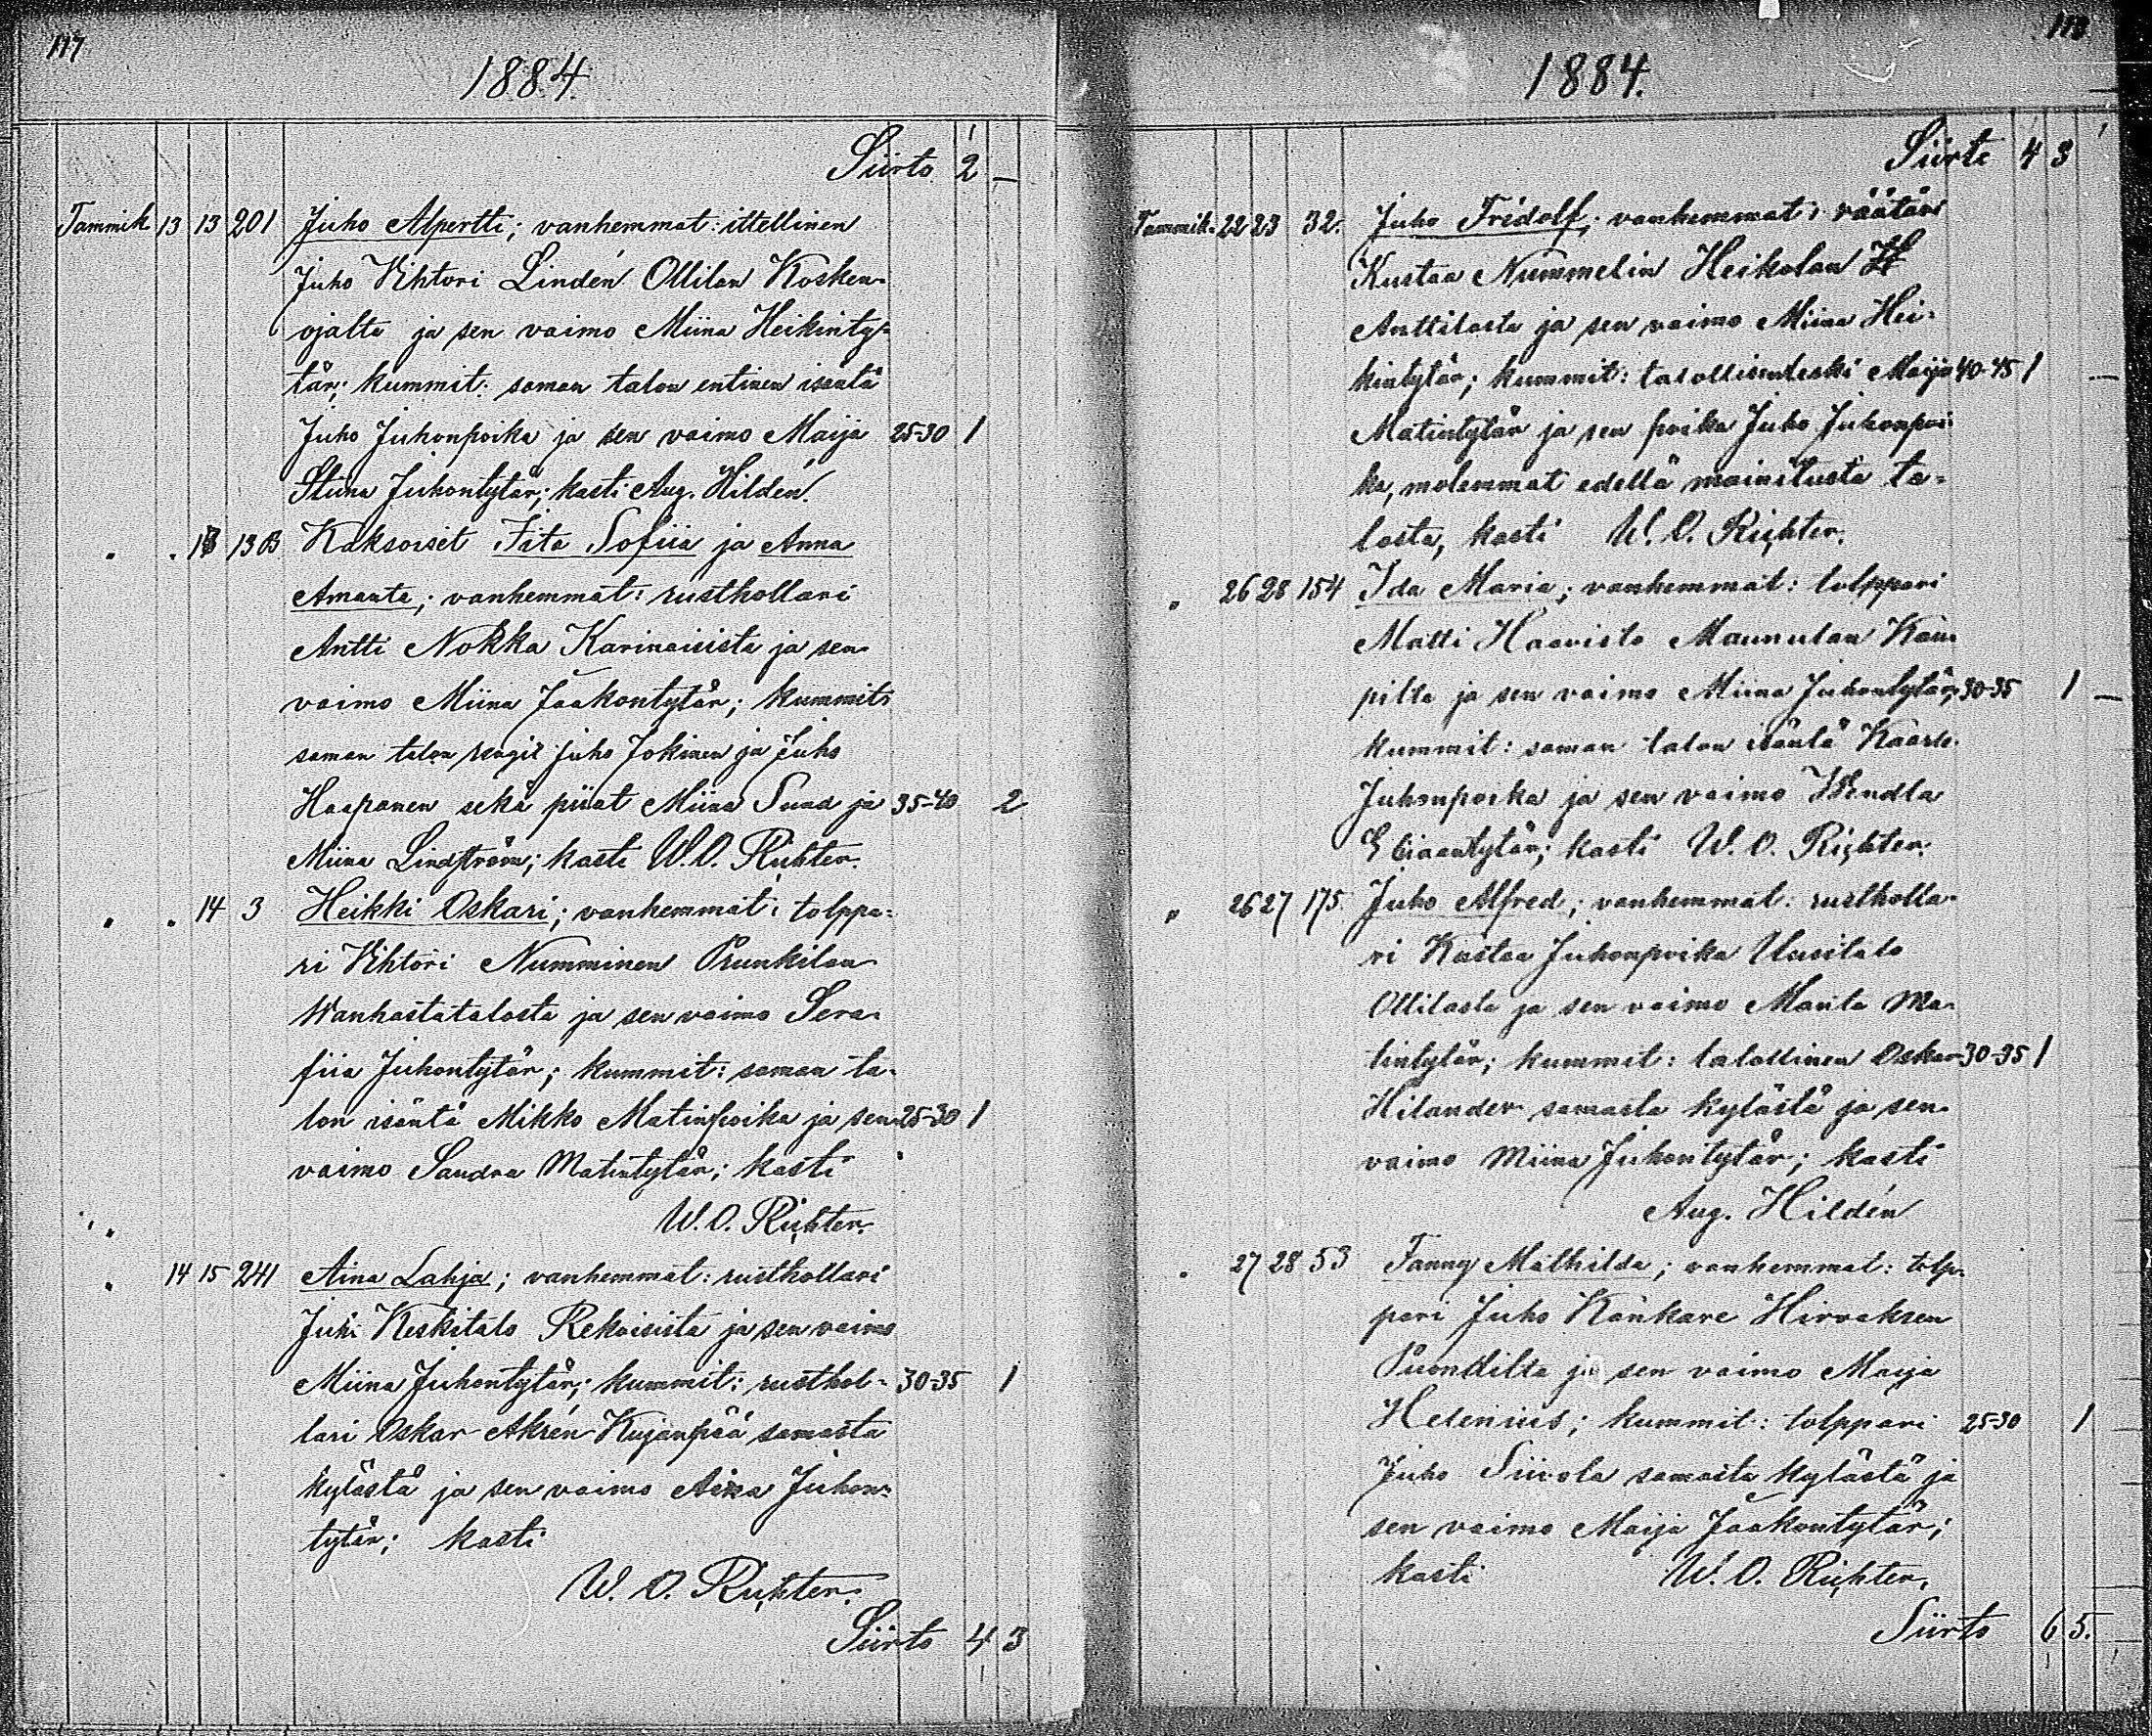 117
1884.
Siirto 2 —
Tammik. 13 13 201 Juho Alpertti; vanhemmat: ittellinen
Juho Vihtori Lindén Ollilan Kosken-
ojalta ja sen vaimo Miina Heikinty-
tär; kummit: saman talon entinen isäntä
Juho Juhonpoika ja sen vaimo Maija 25-30 1
Stiina Juhontytär; kasti Aug. Hildén.
" " 13 B Kaksoiset Iita Sofiia ja Anna
Amanta; vanhemmat: rusthollari
Antti Nokka Karinaisista ja sen
vaimo Miina Jaakontytär; kummit:
saman talon rengit Juho Jokinen ja Juho
Haapanen sekä piiat Miina Sund ja 35-40 2
Miina Lindström; kasti W. O. Richter.
" " 14 3 Heikki Oskari; vanhemmat: tolppa-
ri Vihtori Numminen Prunkilan
Wanhastatalosta ja sen vaimo Sera-
fiia Juhontytär; kummit: saman ta-
lon isäntä Mikko Matinpoika ja sen 25-30 1
vaimo Sandra Matintytär; kasti
W. O. Richter.
" 14 15 241 Aina Lahja; vanhemmat: rusthollari
Juho Keskitalo Rekoisista ja sen vaimo
Miina Juhontytär; kummit: rusthol- 30-35 1
lari Oskar Akrén Kujanpää samasta
kylästä ja sen vaimo Aina Juhon-
tytär; kasti
W. O. Richter.
Siirto 4 3
118
1884.
Siirto 4 3
Tammik. 22 23 32. Juho Fridolf; vanhemmat: räätäri
Kustaa Nummelin Heikolan
Anttilasta ja sen vaimo Miina Hei-
kintytär; kummit: talollisenleski Maija 40-45 1
Matintytär ja sen poika Juho Juhonpoi-
ka, molemmat edellä mainitusta ta-
losta, kasti W. O. Richter.
" 26 28 154 Ida Maria; vanhemmat: tolppari
Matti Haavisto Maunulan
pilta ja sen vaimo Miina Juhontytär; 30-35 1 —
kummit: saman talon isäntä Kaarle
Juhonpoika ja sen vaimo Wendla
Eliaantytär; kasti W. O. Richter.
" 26 27 175 Juho Alfred; vanhemmat: rustholla-
ri Kustaa Juhonpoika Uusitalo
Ollilasta ja sen vaimo Manta Ma-
tintytär; kummit: talollinen Oskar 30-35 1
Hilander samasta kylästä ja sen
vaimo Miina Juhontytär; kasti
Aug. Hildén
" 27 28 53 Fanny Mathilda; vanhemmat: tolp-
pari Juho Kankare Hirvaksen
Puonttilta ja sen vaimo Maija
Helenius; kummit: tolppari 25-30 1
Juho Siivola samasta kylästä ja
sen vaimo Maija Jaakontytär;
kasti W. O. Richter.
Siirto 6 5.